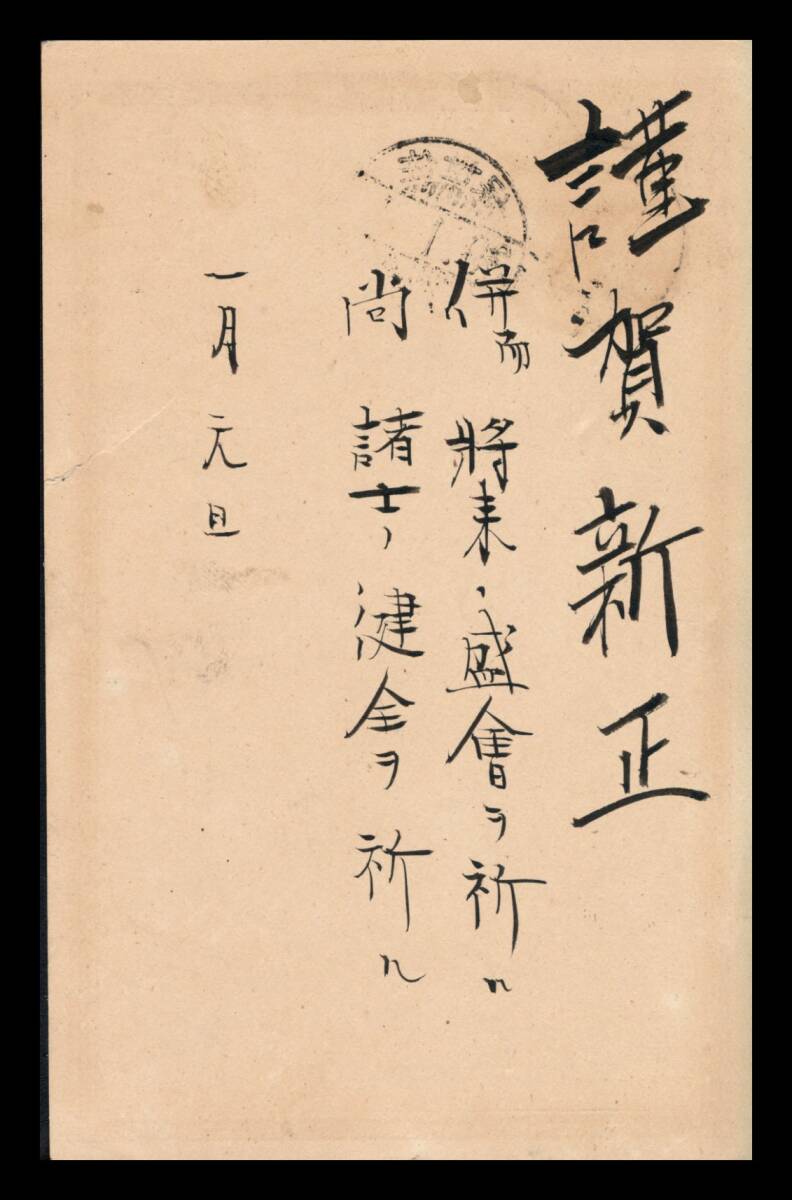 謹賀新正
併而將来ノ盛會ヲ祈ル
尚諸士ノ健全ヲ祈ル
一月元旦